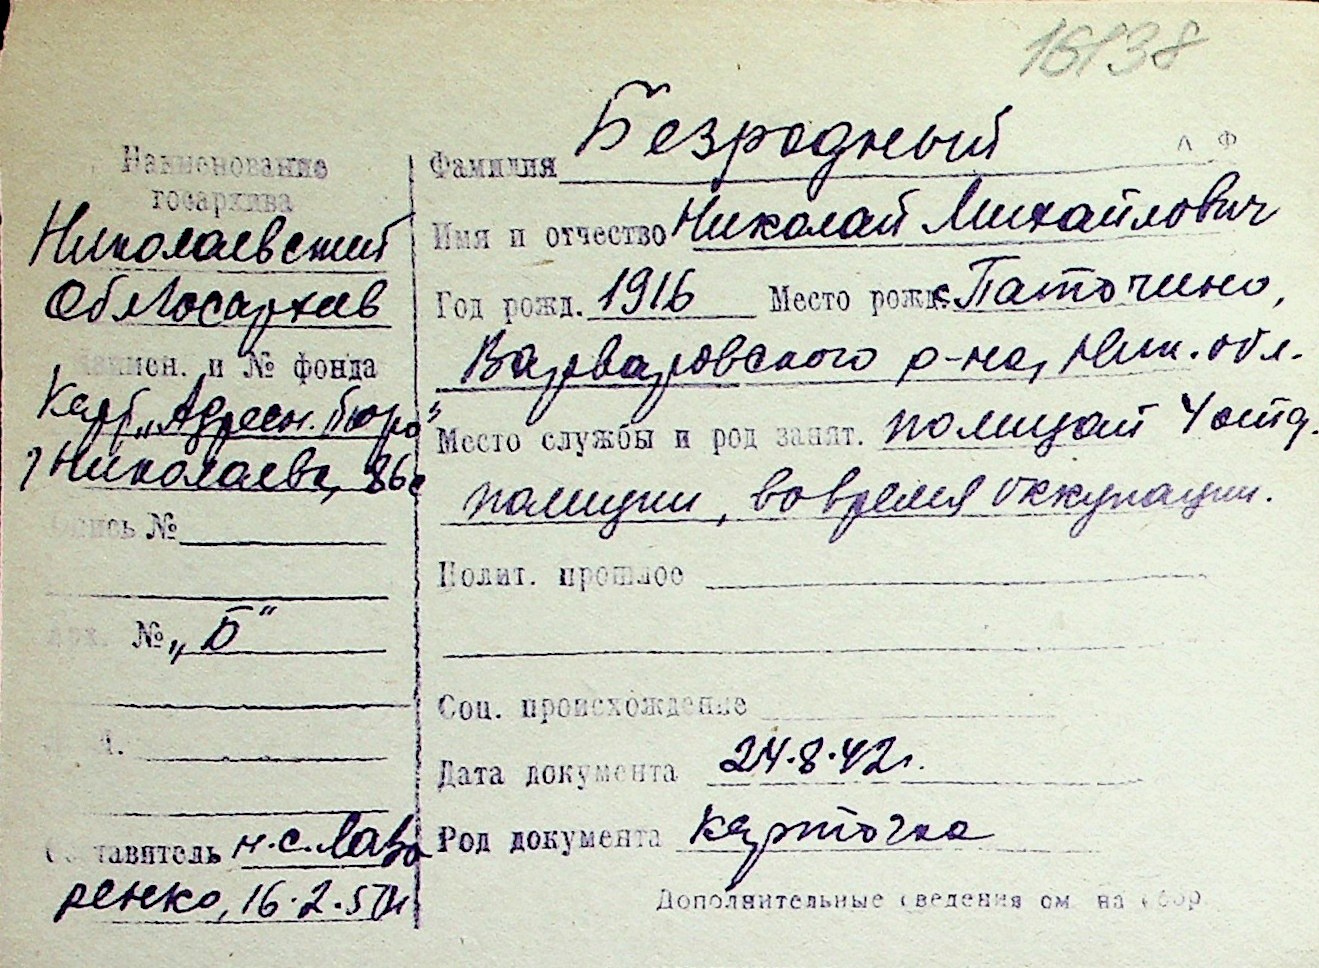 16138
Наименование
госархива
Николаевский
Облгосархив
Наимен. и № фонда
Карт. „Адресн. бюро”
г Николаева, 86с
Опись №
Арх. № „Б“
Составитель н.с. Лава
ренко, 16.2.57г
Фамилия Безродный
Л Ф
Имя и отчество Николай Михайлович
Год рожд. 1916 Место рожд. с. Паточино,
Варваровского р-на, Ник. обл.
Место службы и род занят. полицай 4 отд.
полиции, во время оккупации.
Полит. прошлое
Соц. происхождение
Дата документа 24.8.42г.
Род документа карточка
Дополнительные сведения см. на обор.